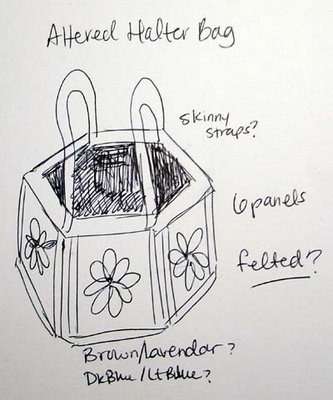 Altered Halter Bag
skinny
straps?
6 panels
felted?
Brown/lavendar?
DkBlue/LtBlue?